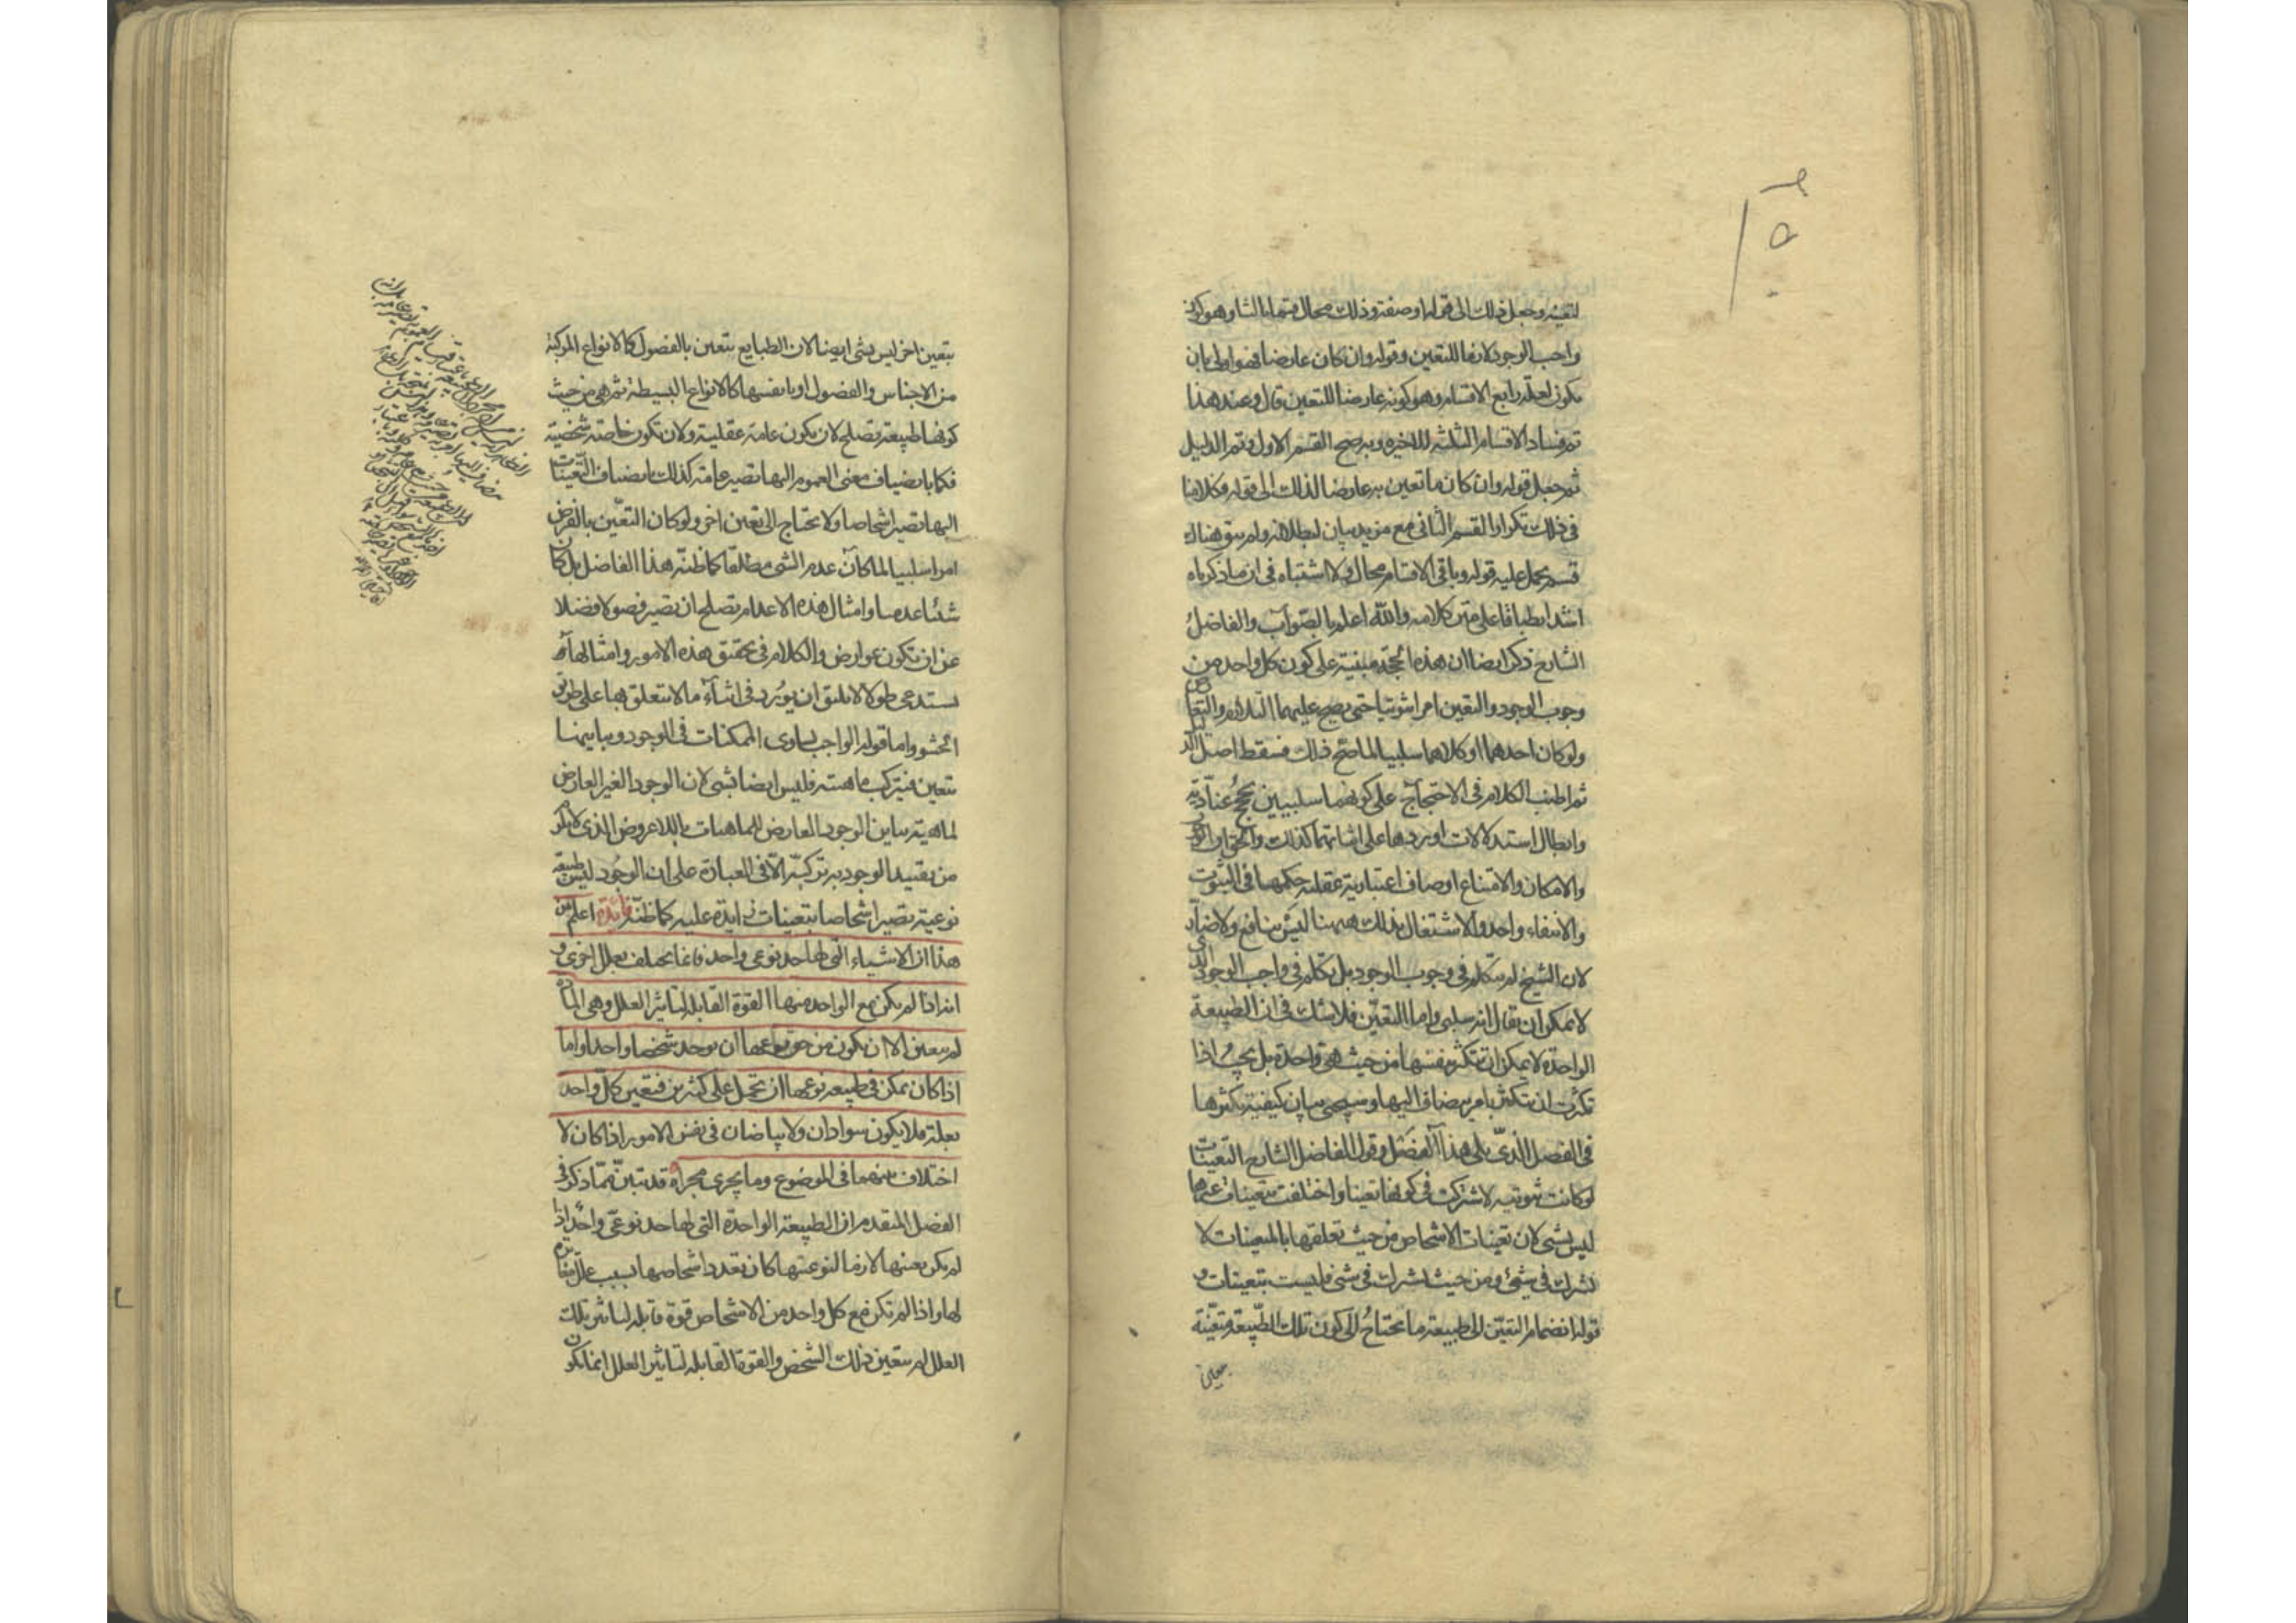 لتعينه وجعل ذلك الى قوله او صفة وذلك محال قسما ثالثا وهو كون
واجب الوجود لازما للتعين وقوله وان كان عارضا فهو اولى بان
يكون لعلة رابع الاقسام وهو كونه عارضا للتعين قال وعند هذا
تم فساد الاقسام الثلثة الاخيرة وبه صح القسم الاول وتم الدليل
ثم جعل قوله وان كان ما تعين به عارضا لذلك الى قوله وكلامنا
فى ذلك تكرارا للقسم الثانى مع مزيد بيان لبطلانه ولم يبق هناك
قسم يحمل عليه قوله وباقى الاقسام محال ولا اشتباه فى ان ما ذكرناه
اشد انطباقا على متن كلامه والله اعلم بالصواب والفاضل
الشارح ذكر ايضا ان هذه الحجة مبنية على كون كل واحد من
وجوب الوجود والتعين امرا ثبوتيا حتى يصح عليهما التلازم والتعارض
ولو كان احدهما او كلاهما سلبيا لما صح ذلك فسقط اصل الدليل
ثم اطنب الكلام فى الاحتجاج على كونهما سلبيين بحجج عنادية
وابطال استدلالات اوردها على اثباتهما كذلك والحق ان الوجوب
والامكان والامتناع اوصاف اعتبارية عقلية حكمها فى الثبوت
والانتفاء واحد والاشتغال بذلك ههنا ليس بنافع ولا ضار
لان الشيخ لم يتكلم فى وجوب الوجود بل تكلم فى واجب الوجود الذى
لا يمكن ان يقال انه سلبى واما التعين فلا شك فى ان الطبيعة
الواحدة لا يمكن ان تتكثر بنفسها من حيث هى واحدة بل يجب اذا
تكثرت ان تتكثر بامر يضاف اليها وسيجئ بيان كيفية تكثرها
فى الفصل الذى يلى هذا الفصل وقول الفاضل الشارح التعينات
لو كانت ثبوتية لاشتركت فى كونها تعينا واختلفت بتعينات غيرها
ليس بشئ لان تعينات الاشخاص من حيث تعلقها بالمتعينات لا
تشترك فى شئ ومن حيث اشتراك فى شئ فليست بتعينات و
قوله انضمام التعين الى طبيعة ما يحتاج الى كون تلك الطبيعة متعينة
بتعين
بتعين اخر ليس بشئ ايضا لان الطبايع تتعين بالفصول كالانواع المركبة
من الاجناس والفصول او بانفسها كالانواع البسيطة ثم هى من حيث
كونها طبيعة تصلح لان تكون عامة عقلية ولان تكون خاصة شخصية
فكما بانضياف معنى العموم اليها تصير عامة كذلك بانضياف التعينات
اليها تصير اشخاصا ولا يحتاج الى تعين اخر ولو كان التعين بالفرض
امرا سلبيا لما كان عدم الشئ مطلقا كما ظنه هذا الفاضل بل كان
شئا عدميا وامثال هذه الاعدام تصلح ان تصير فصولا فضلا
عن ان تكون عوارض والكلام فى تحقيق هذه الامور وامثالها
يستدعى طولا لا يليق ان يورد فى اثناء ما لا يتعلق بها على طريق
الحشو واما قوله الواجب يساوى الممكنات فى الوجود ويباينها
بتعين فيتركب ماهيته فليس ايضا بشئ لان الوجود الغير العارض
لماهية يباين الوجود العارض للماهيات باللاعروض الذى لا يلزم
من تقييد الوجود به تركب الا فى العبارة على ان الوجود ليس طبيعة
نوعية تصير اشخاصا بتعينات زايدة عليه كما ظنه فائدة اعلم من
هذا ان الاشياء التى لها حد نوعى واحد فانما يختلف بعلل اخرى و
انه اذا لم يكن مع الواحد منها القوة القابلة لتاثير العلل وهى المادة
لم يتعين الا ان يكون من حق نوعها ان يوجد شخصا واحدا واما
اذا كان يمكن فى طبيعة نوعها ان تحمل على كثيرين فتعين كل واحد
بعلة فلا يكون سوادان ولا بياضان فى نفس الامور اذا كان لا
اختلاف بينهما فى الموضوع وما يجرى مجراه قد تبين مما ذكر فى
الفصل المتقدم ان الطبيعة الواحدة التى لها حد نوعى واحد اذا
لم يكن تعينها لازما لنوعيتها كان تعدد اشخاصها بسبب علل مغايرة
لها واذا لم تكن مع كل واحد من الاشخاص قوة قابلة لتاثير تلك
العلل لم يتعين ذلك الشخص والقوة القابلة لتاثير العلل انما يكون